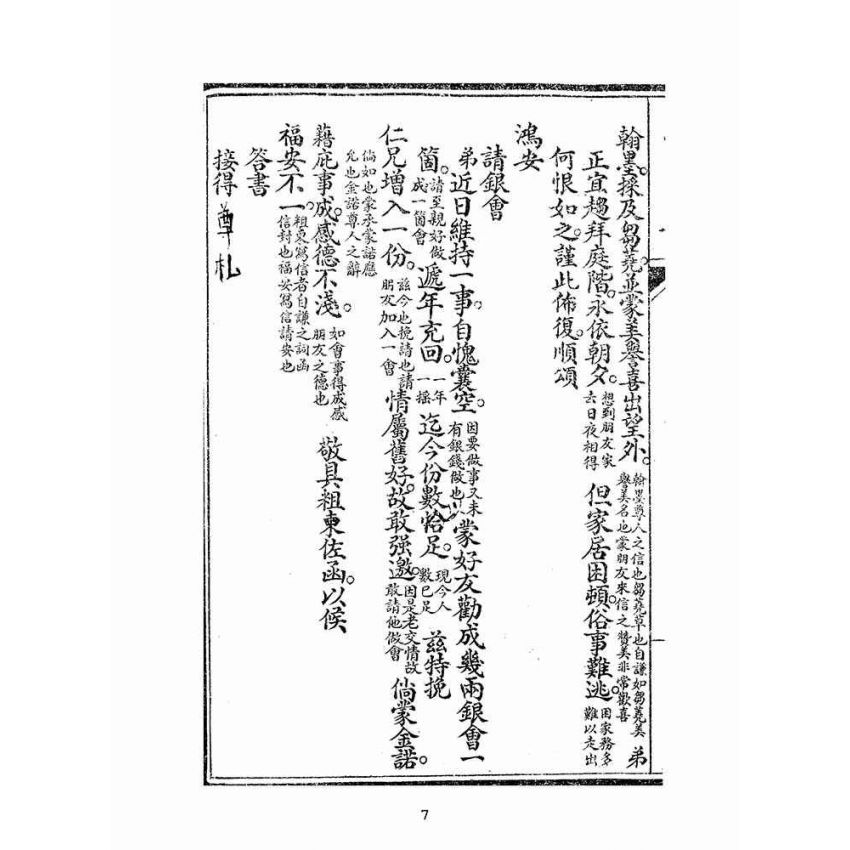 翰墨。採及芻蕘。並蒙美譽。喜出望外。翰墨尊人之信也芻蕘草也自謙如芻蕘美譽美名也蒙朋友來信之贊美非常歡喜 弟
正宜趨拜庭階。永依朝夕。想到朋友家去日夜相得 但家居困頓。俗事難逃。因家務多難以走出
何恨如之。謹此佈復。順頌
鴻安
請銀會
弟近日維持一事。自愧囊空。因要做事又未有銀錢做也 蒙好友勸成幾兩銀會一
箇。請至親好做成一箇會 遞年充回。一年一搖 迄今份數恰足。現今人數已足 茲特挽
仁兄增入一份。茲今也挽請也請朋友加入一會 情屬舊好。故敢強邀。因是老交情故敢請他做會 倘蒙金諾。
倘如也蒙承蒙諾應允也金諾尊人之辭
藉庇事成。感德不淺。如會事得成感朋友之德也 敬具粗柬佐函。以候
福安不一。粗柬寫信者自謙之詞函信封也福安寫信請安也
答書
接得 尊札
7